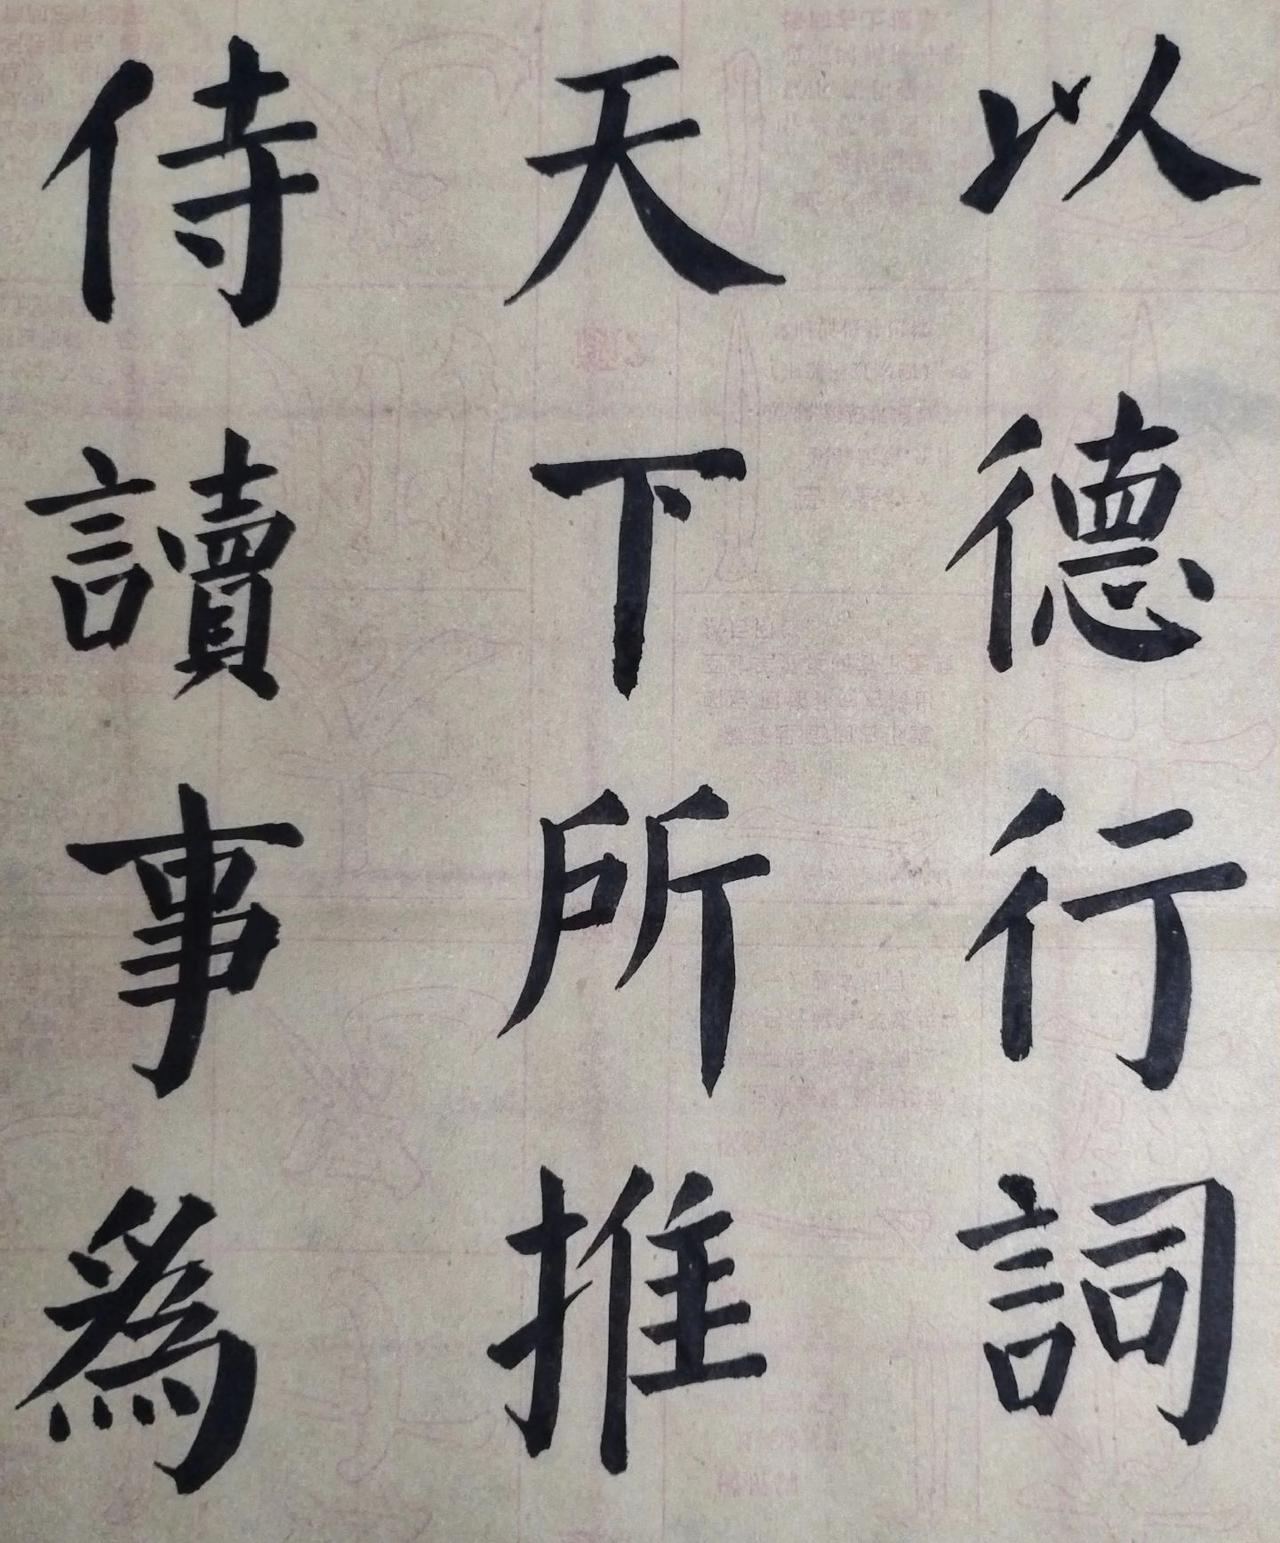 以德行詞
天下所推
侍讀事為